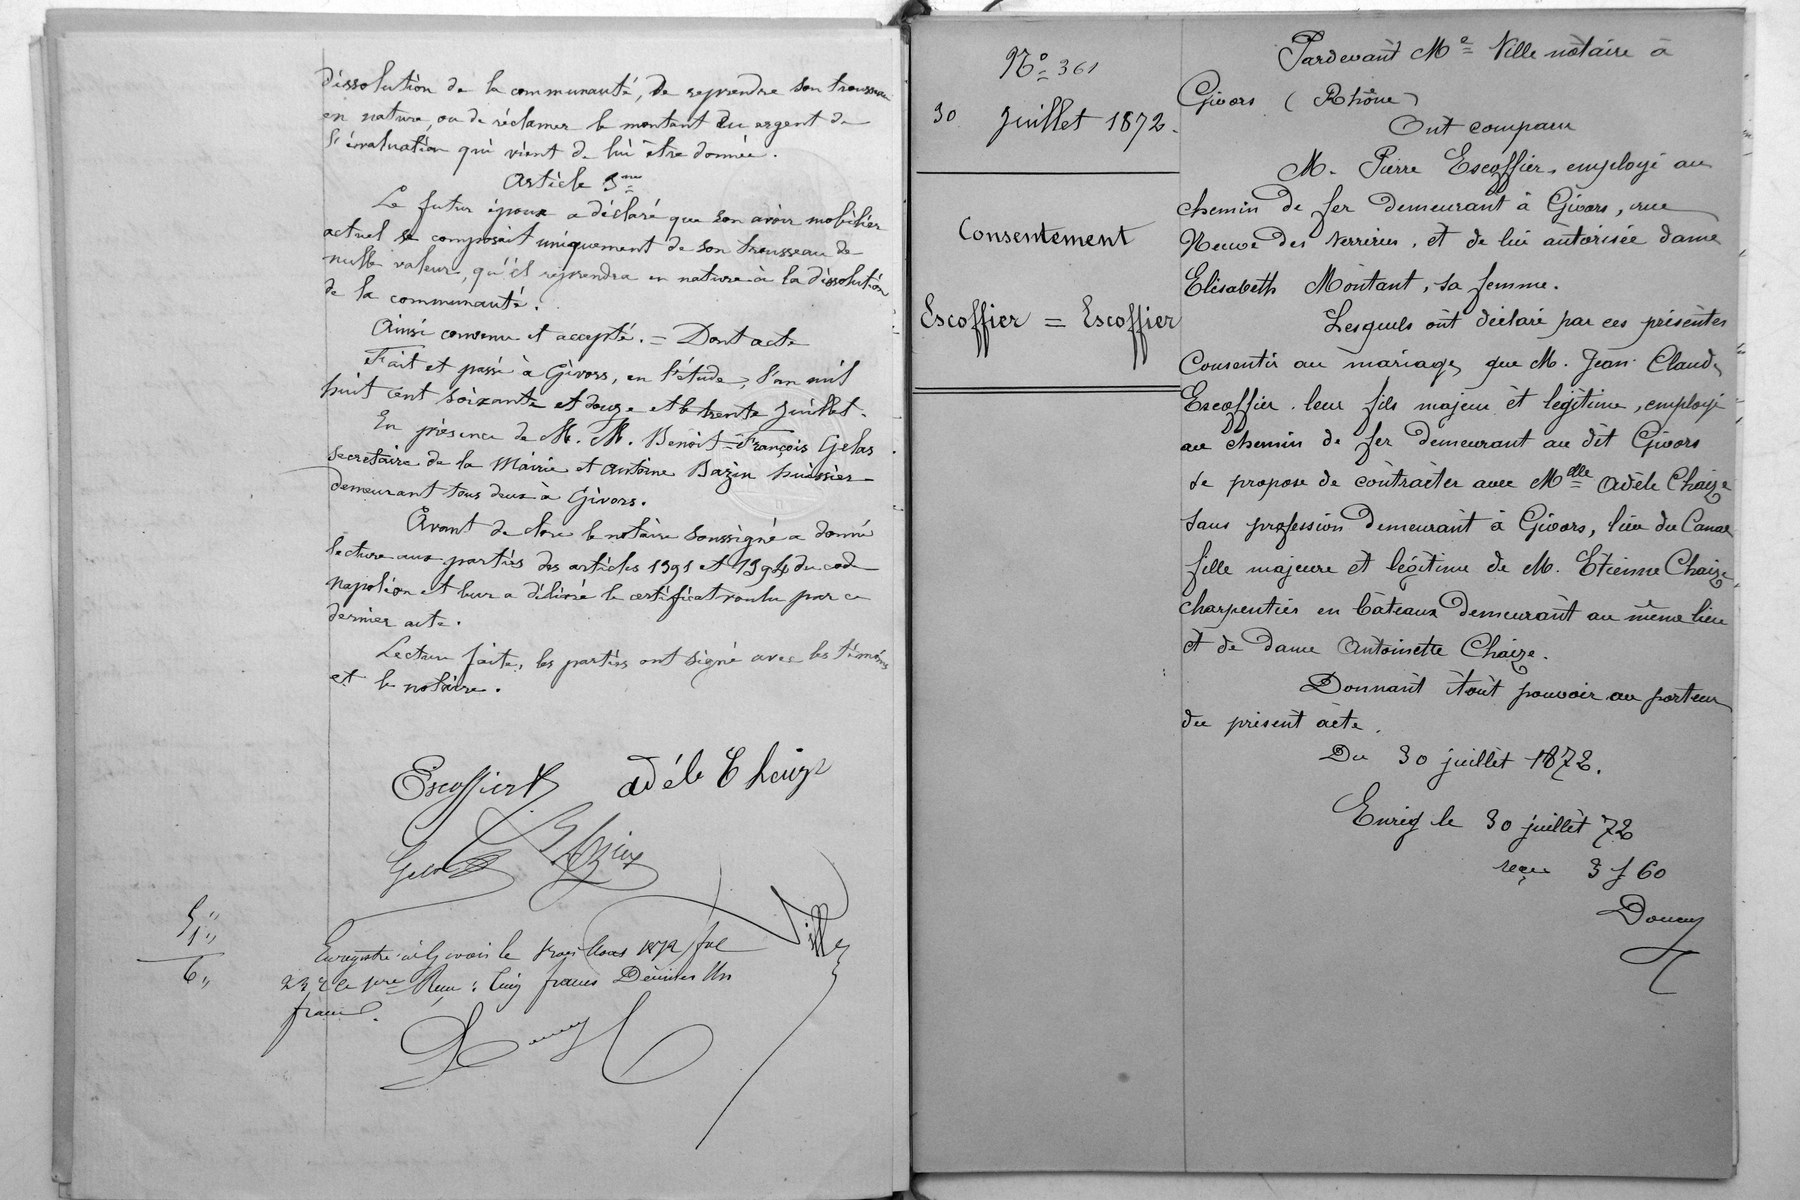 dissolution de la communauté, de reprendre son trousseau
en nature, ou de réclamer le montant en argent de
l'évaluation qui vient de lui être donnée.
Article 5me
Le futur époux a déclaré que son avoir mobilier
actuel se composait uniquement de son trousseau de
nulle valeur, qu'il reprendra en nature à la dissolution
de la communauté.
Ainsi convenu et accepté. = Dont acte
Fait et passé à Givors, en l'étude, l'an mil
huit cent soixante et douze et le trente Juillet.
En présence de M. M. Benoit-François Gelas
secretaire de la Mairie et Antoine Bazin huissier
demeurant tous deux à Givors.
Avant de clore le notaire soussigné a donné
lecture aux parties des articles 1391 et 1394 du code
napoléon et leur a délivré le certificat voulu par ce
dernier acte.
Lecture faite, les parties ont signé avec les témoins
et le notaire.
Escoffier adéle Chaize
Gelas Bazin
Ville
5 "
1 "
6 "
Enregistré à Givors le trois Aout 1872 fol
23 Reçu : Cinq francs Décimes Un
franc.
Nº 361
30 Juillet 1872.
Consentement
Escoffier = Escoffier
Pardevant Me Ville notaire à
Givors (Rhône)
Ont comparu
M. Pierre Escoffier, employé au
chemin de fer demeurant à Givors, rue
Neuve des Verreries, et de lui autorisée dame
Elisabeth Montant, sa femme.
Lesquels ont déclaré par ces présentes
Consentir au mariage que M. Jean Claude
Escoffier leur fils majeur et légitime, employé
au chemin de fer demeurant au dit Givors
se propose de contracter avec Melle Adèle Chaize
sans profession demeurant à Givors, lieu du Canal
fille majeure et légitime de M. Etienne Chaize
charpentier en bateaux demeurant au même lieu
et de dame Antoinette Chaize.
Donnant tout pouvoir au porteur
du présent acte.
Du 30 juillet 1872.
Enreg le 30 juillet 72
reçu 3 f 60